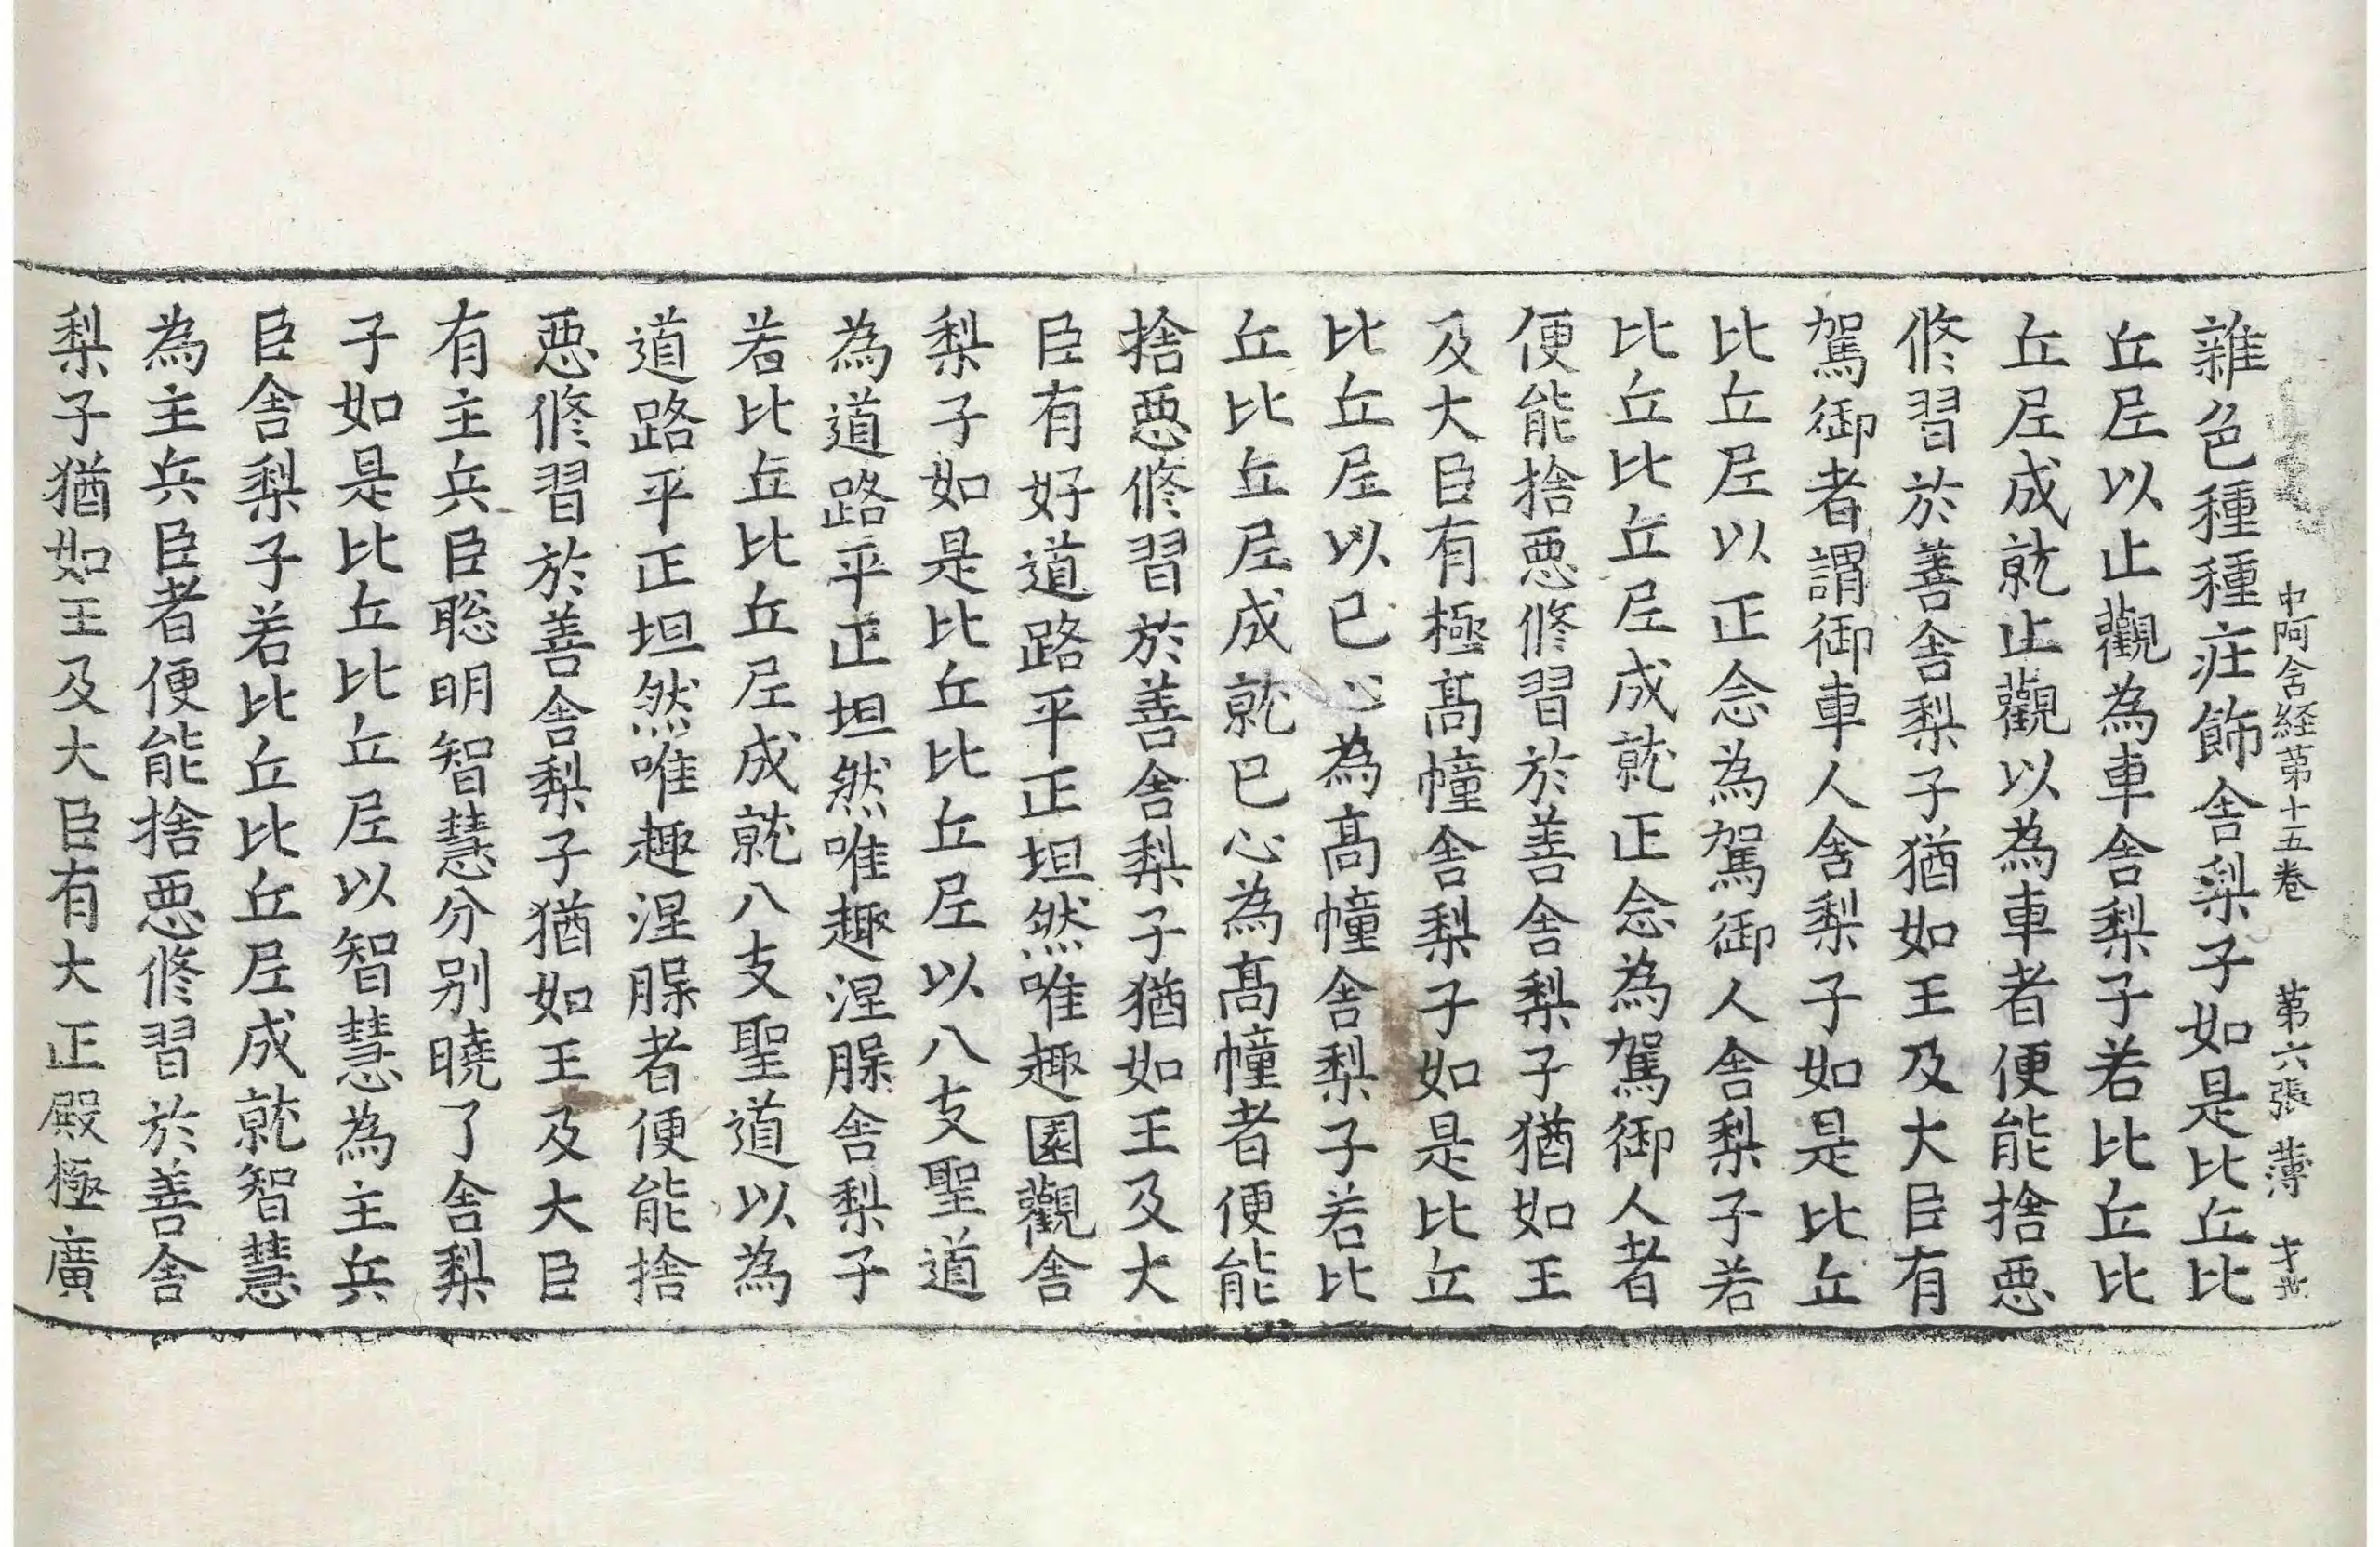 中阿含経第十五卷 第六張 薄
雜色種種疘飾舍梨子如是比丘比
丘𡰱以止觀為車舍梨子若比丘比
丘𡰱成就止觀以為車者便能捨惡
修習於善舍梨子猶如王及大臣有
駕御者謂御車人舍梨子如是比丘
比丘𡰱以正念為駕御人舍梨子若
比丘比丘𡰱成就正念為駕御人者
便能捨惡修習於善舍梨子猶如王
及大臣有極髙幢舍梨子如是比丘
比丘𡰱以已心為髙幢舍梨子若比
丘比丘𡰱成就已心為髙幢者便能
捨惡修習於善舍梨子猶如王及大
臣有好道路平正坦然唯趣園觀舍
梨子如是比丘比丘𡰱以八支聖道
為道路平正坦然唯趣涅槃舍梨子
若比丘比丘𡰱成就八支聖道以為
道路平正坦然唯趣涅槃者便能捨
惡修習於善舍梨子猶如王及大臣
有主兵臣聡明智慧分别曉了舍梨
子如是比丘比丘𡰱以智慧為主兵
臣舍梨子若比丘比丘𡰱成就智慧
為主兵臣者便能捨惡修習於善舍
梨子猶如王及大臣有大正殿極廣